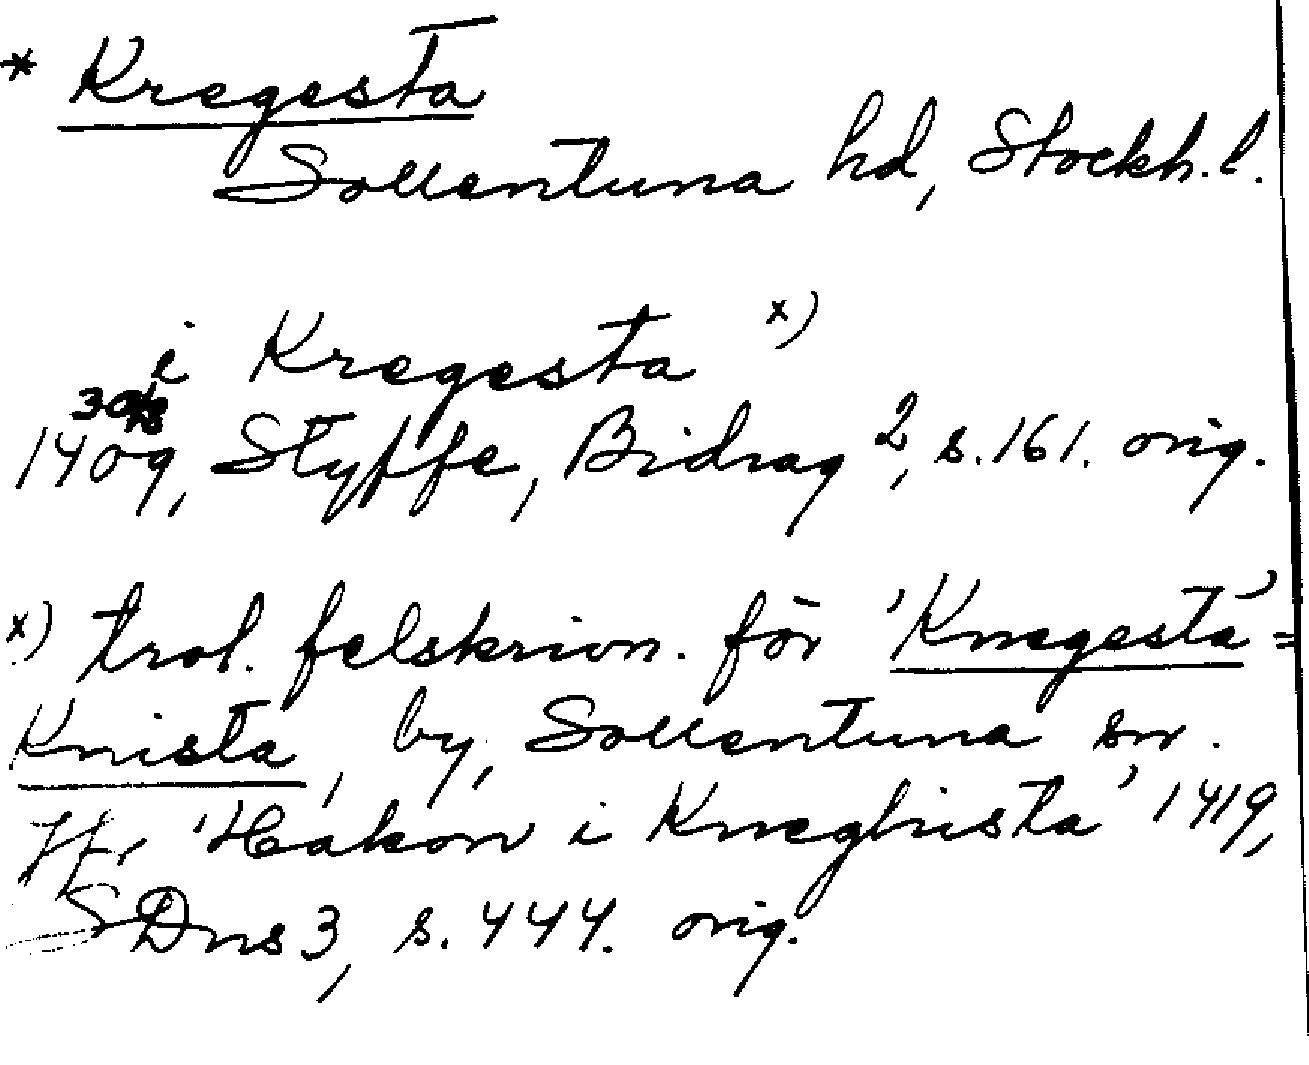 * Kregesta
Sollentuna hd, Stockh. l.
i Kregesta x)
1409, Styffe, Bidrag 2, s. 161. orig.
x) trol. felskrivn. för 'Knegesta' =
Knista, by, Sollentuna sn.
Jfr 'Hakon i Kneghista' 1419,
SDns 3, s. 444. orig.